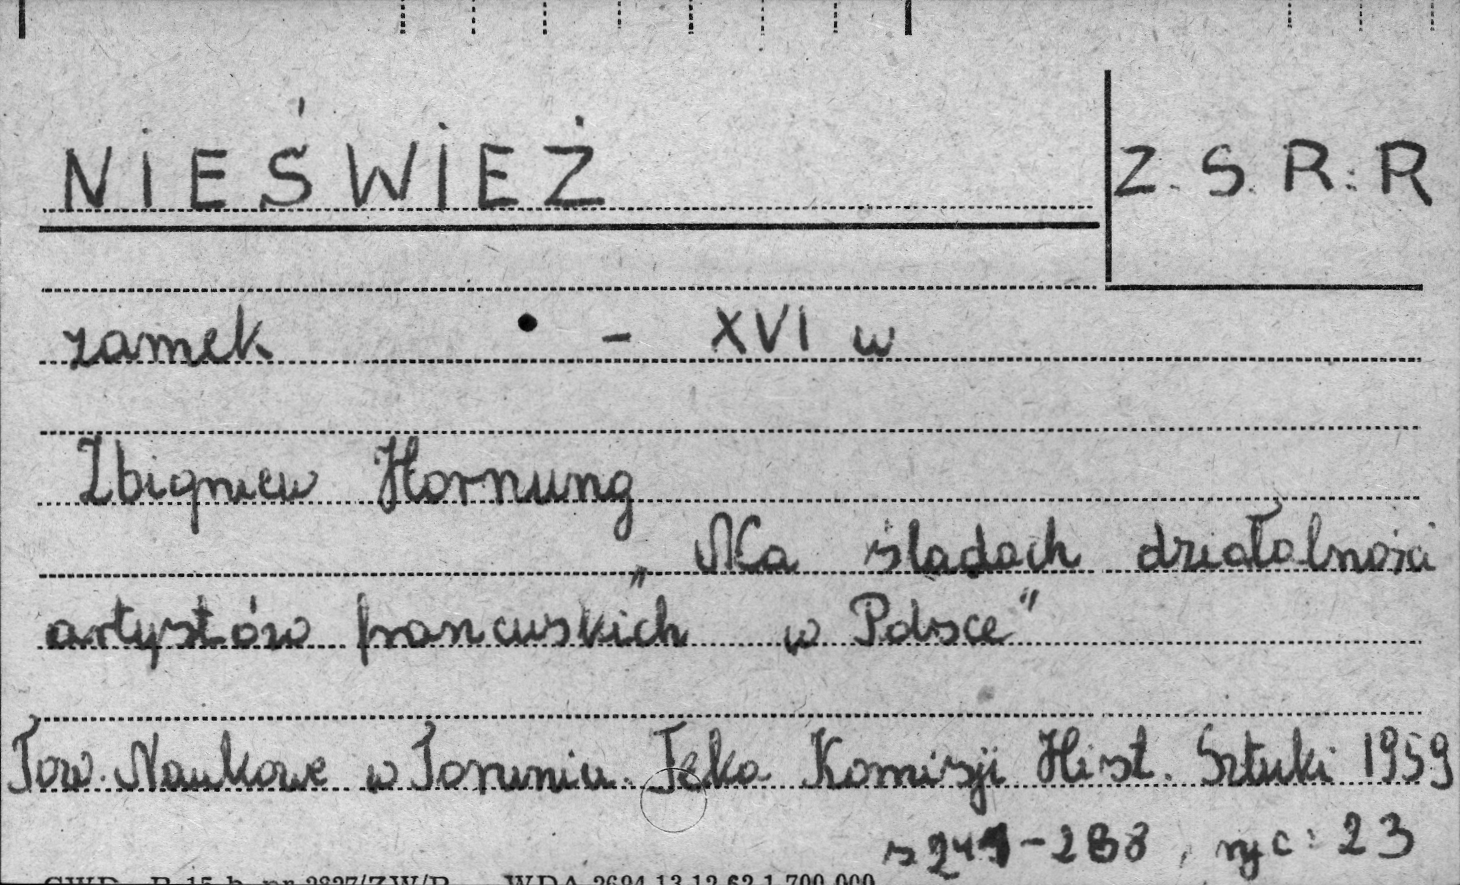 NIEŚWIEŻ
Z.S.R.R
zamek - XVI w
Zbigniew Hornung
„Na śladach działalności
artystów francuskich w Polsce"
Tow. Naukowe w Toruniu. Teka Komisji Hist. Sztuki 1959
s 241-288, ryc: 23